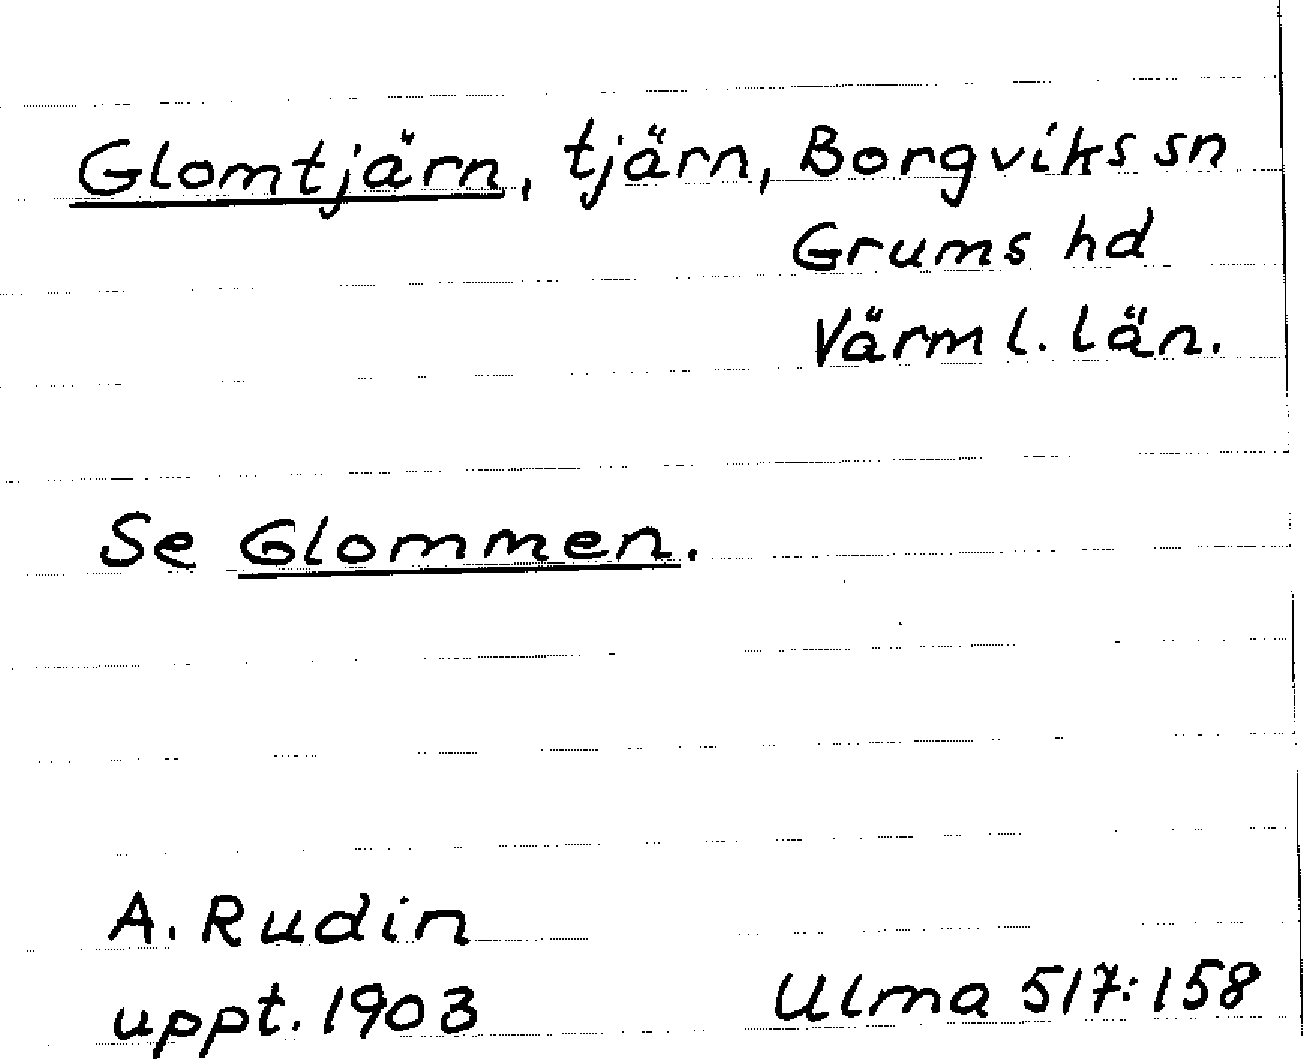 Glomtjärn, tjärn, Borgviks sn
Grums hd
Värml. län.
Se Glommen.
A. Rudin
uppt. 1903
Ulma 517:158